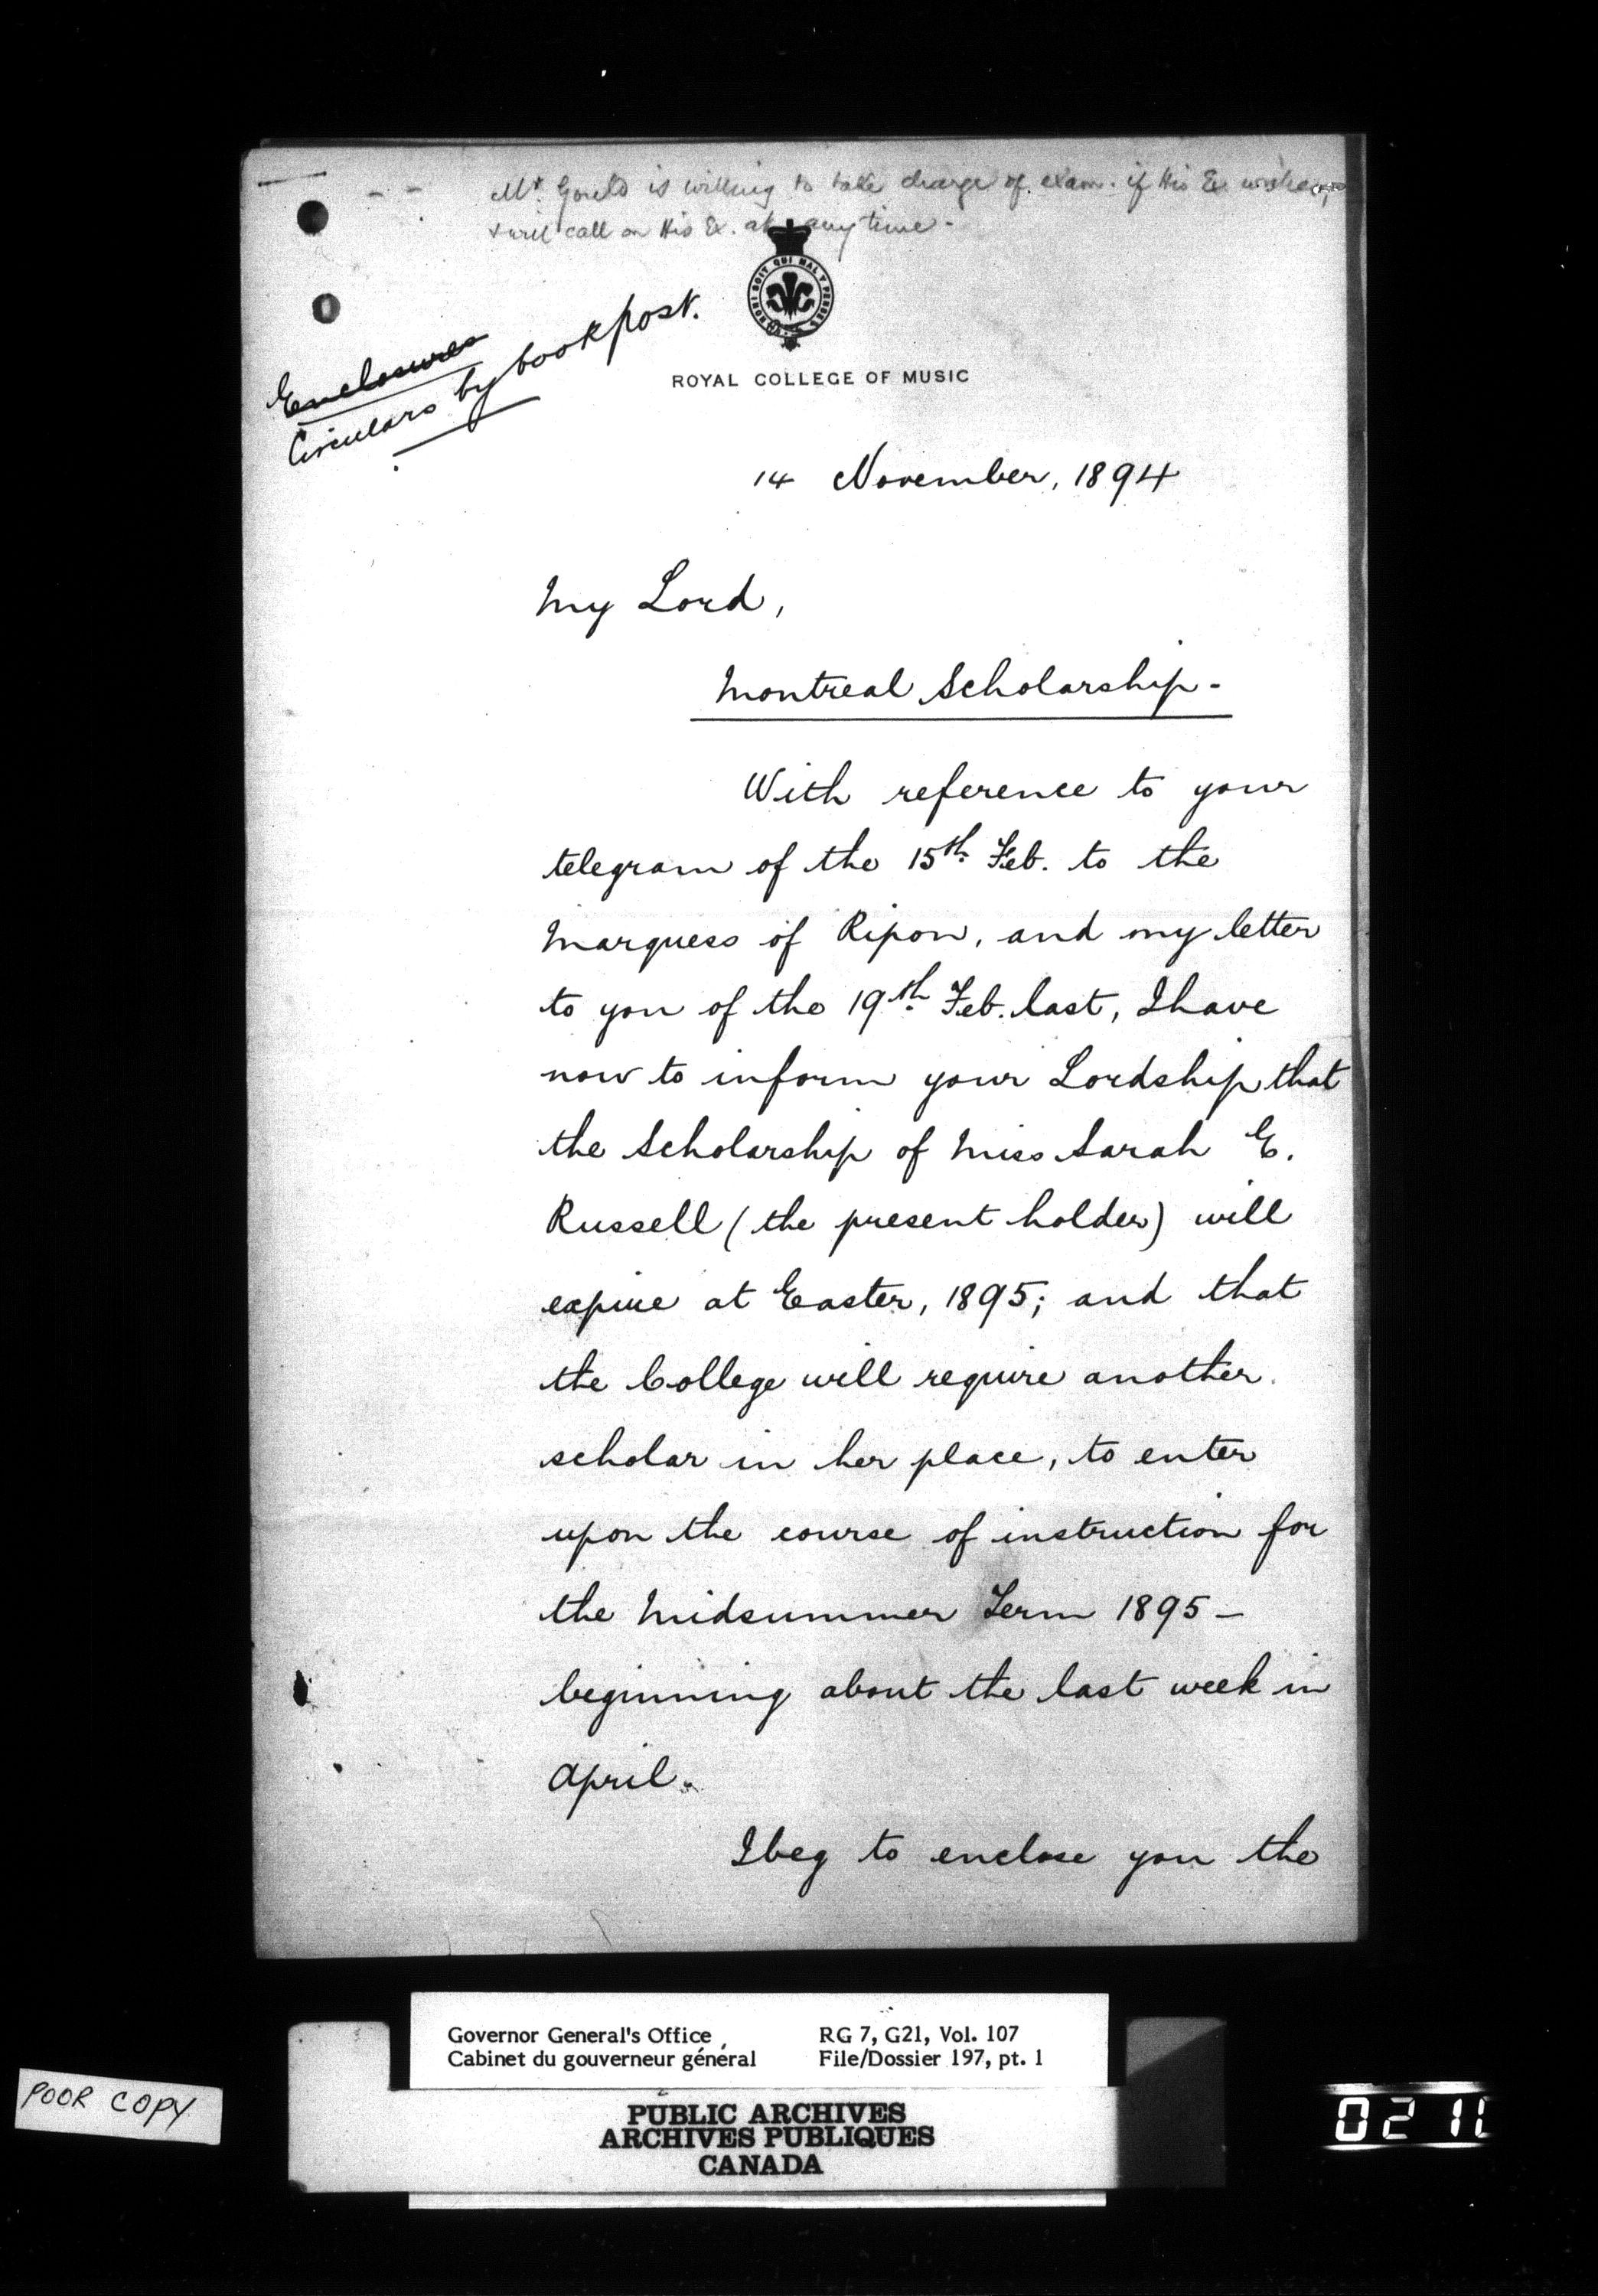 Mr. Gould is willing to take charge of exam. if His Ex. wishes,
& will call on His Ex. at any time -
Enclosures
Circulars by bookpost.
HONI SOIT QUI MAL Y PENSE
ROYAL COLLEGE OF MUSIC
14 November, 1894
My Lord,
Montreal Scholarship -
With reference to your
telegram of the 15th. Feb. to the
Marquess of Ripon, and my letter
to you of the 19th. Feb. last, I have
now to inform your Lordship that
the Scholarship of Miss Sarah E.
Russell (the present holder) will
expire at Easter, 1895; and that
the College will require another
scholar in her place, to enter
upon the course of instruction for
the Midsummer Term 1895 -
beginning about the last week in
April.
I beg to enclose you the
Governor General's Office RG 7, G21, Vol. 107
Cabinet du gouverneur général File/Dossier 197, pt. 1
POOR COPY
PUBLIC ARCHIVES
ARCHIVES PUBLIQUES
CANADA